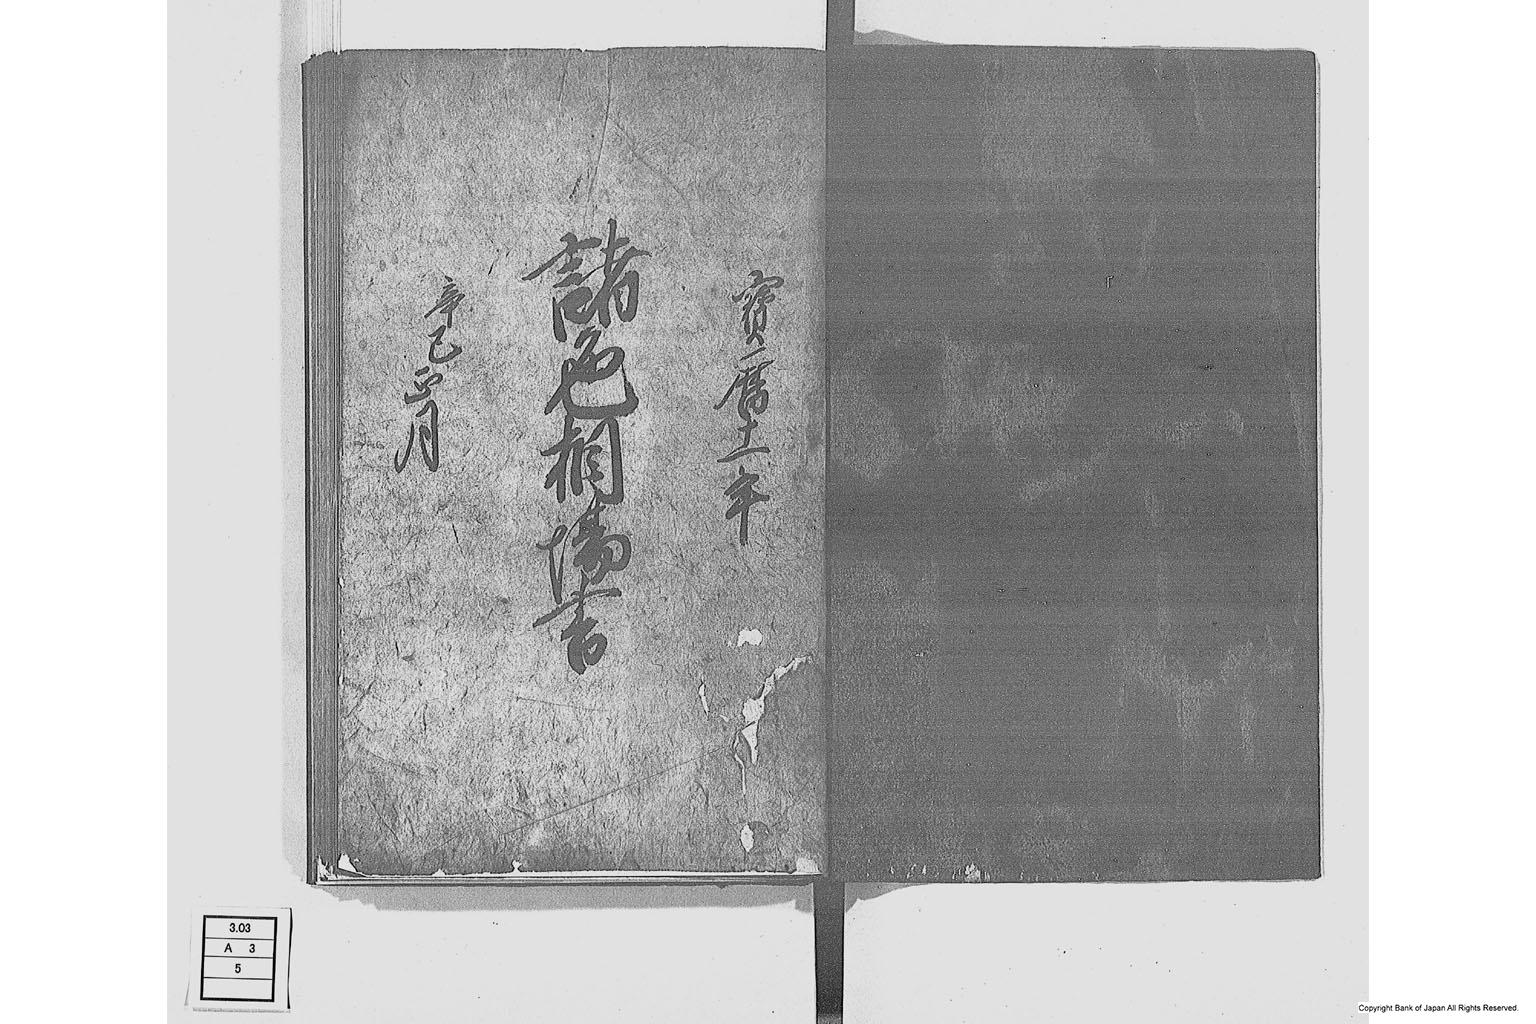 寶暦十一年
諸色相場書
辛巳正月
3.03
A 3
5
Copyright Bank of Japan All Rights Reserved.